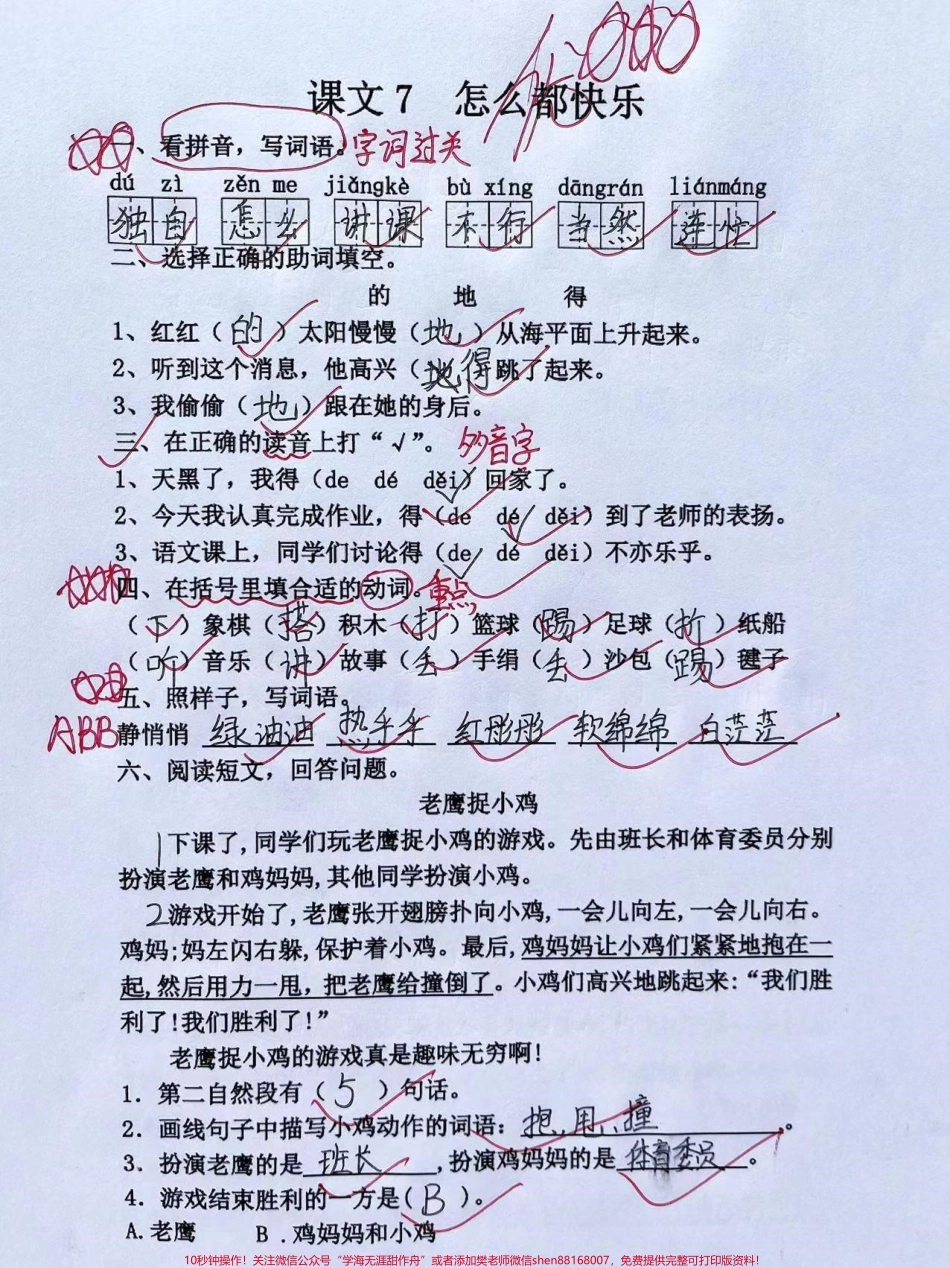 课文7 怎么都快乐
一、看拼音，写词语。字词过关
dú zì zěn me jiǎngkè bù xíng dāngrán liánmáng
独自 怎么 讲课 不行 当然 连忙
二、选择正确的助词填空。
的 地 得
1、红红（的）太阳慢慢（地）从海平面上升起来。
2、听到这个消息，他高兴（得）跳了起来。
3、我偷偷（地）跟在她的身后。
三、在正确的读音上打“√”。 多音字
1、天黑了，我得（de dé děi）回家了。
2、今天我认真完成作业，得（de dé děi）到了老师的表扬。
3、语文课上，同学们讨论得（de dé děi）不亦乐乎。
四、在括号里填合适的动词。重点
（下）象棋（搭）积木（打）篮球（踢）足球（折）纸船
（听）音乐（讲）故事（丢）手绢（丢）沙包（踢）毽子
五、照样子，写词语。
ABB 静悄悄 绿油油 热乎乎 红彤彤 软绵绵 白茫茫
六、阅读短文，回答问题。
老鹰捉小鸡
1下课了,同学们玩老鹰捉小鸡的游戏。先由班长和体育委员分别
扮演老鹰和鸡妈妈,其他同学扮演小鸡。
2游戏开始了,老鹰张开翅膀扑向小鸡,一会儿向左,一会儿向右。
鸡妈;妈左闪右躲,保护着小鸡。最后,鸡妈妈让小鸡们紧紧地抱在一
起,然后用力一甩，把老鹰给撞倒了。小鸡们高兴地跳起来:“我们胜
利了!我们胜利了!”
老鹰捉小鸡的游戏真是趣味无穷啊!
1．第二自然段有（5）句话。
2．画线句子中描写小鸡动作的词语：抱、甩、撞。
3．扮演老鹰的是班长,扮演鸡妈妈的是体育委员。
4．游戏结束胜利的一方是(B)。
A.老鹰 B .鸡妈妈和小鸡
10秒钟操作！关注微信公众号“学海无涯甜作舟”或者添加樊老师微信shen88168007，免费提供完整可打印版资料！